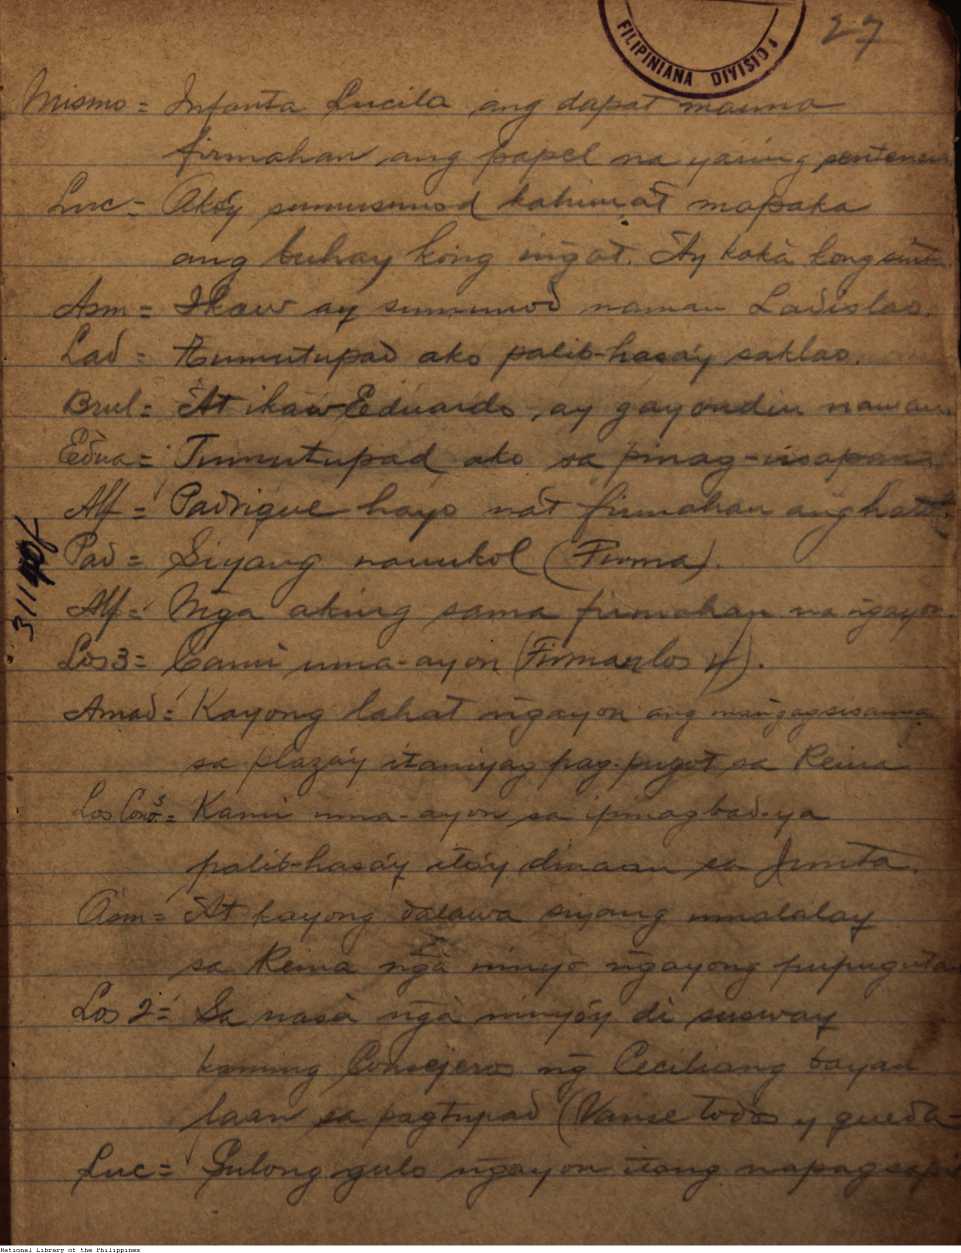 FILIPINIANA DIVISIO
27
Mismo = Infanta Lucila ang dapat mauna
firmahan ang papel na yaring sentencia
Luc = Akóy sumusunod kahimat mapaka
ang buhay kong ingat. Ay kaká kong
Asm = Ikaw ay sumunod naman Ladislao.
Lad = Tumutupad ako palib-hasáy saklao.
Brul = At ikaw Eduardo, ay gayondin naman.
Edua = Tumutupad ako sa pinag-usapan
Alf = Padrique hayo nat firmahan ang
Pad = Siyang nauukol (Firma).
Alf = Mga aking sama firmahan na ngayon.
Los 3 = Cami uma-ayon (Firman los 4).
Amad = Kayong lahat ngayon ang
sa plazáy itaniyag pag-pugot sa Reina
Los Cons = Kami uma-ayon sa ipinagbad-ya
palib-hasáy itóy dinaan sa Junta.
Asm = At kayong dalawa siyang umalalay
sa Reina ngá ninyo ngayong pupugutan
Los 2 = Sa nasà ngà ninyóy di susway
kaming Consejeros ng Ceciliang bayan
laan sa pagtupad (Vanse todos y queda-
Luc = Gulong gulo ngayon itong
31140f
National Library of the Philippines